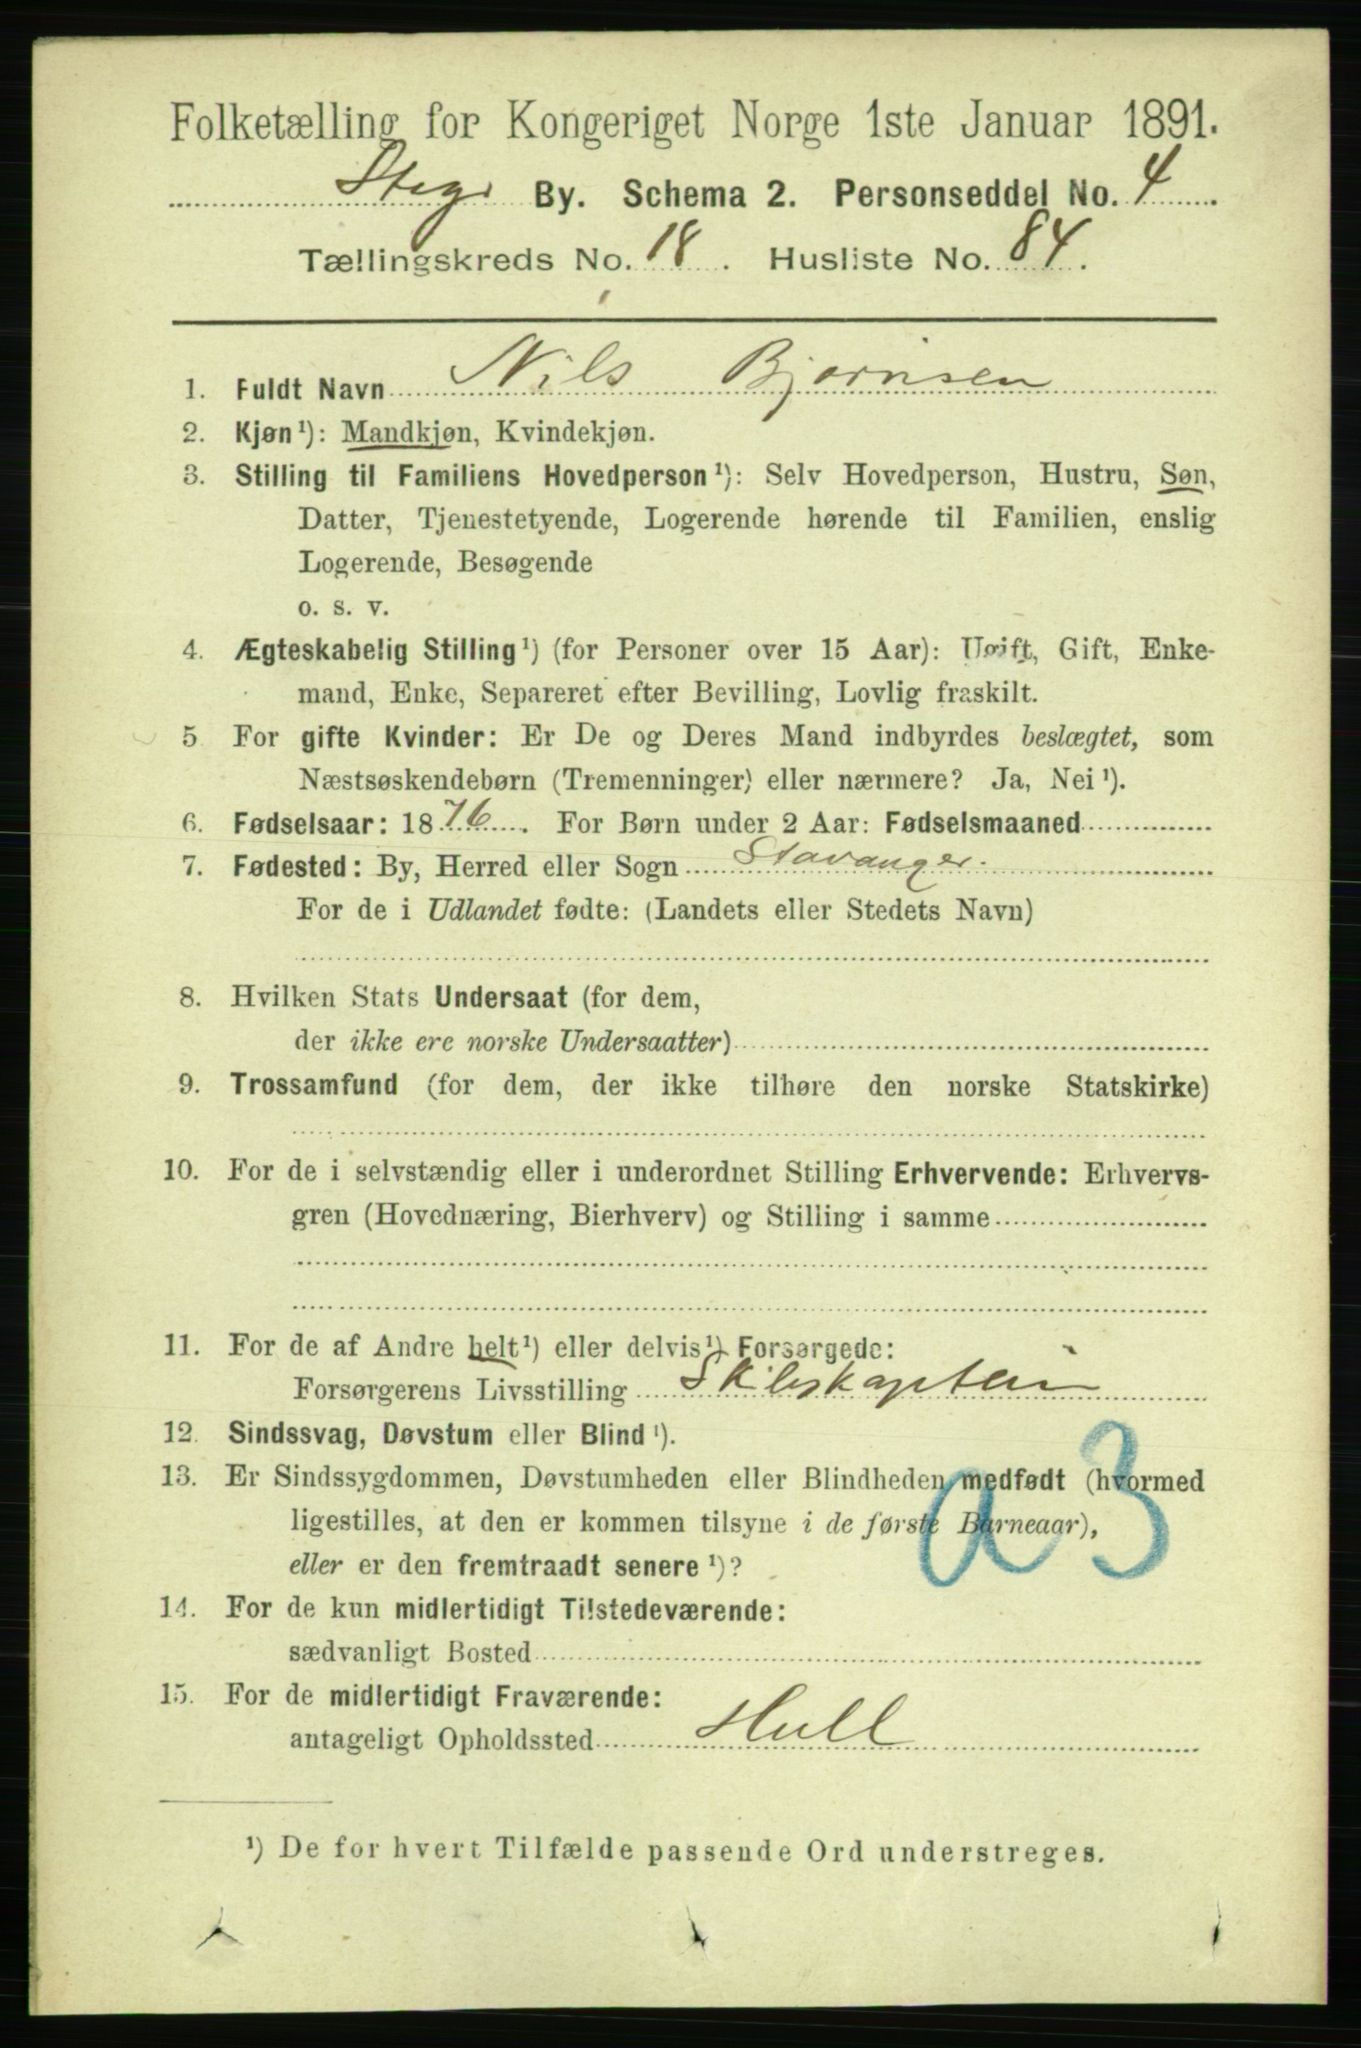 Folketælling for Kongeriget Norge 1ste Januar 1891.
Stvgr By. Schema 2. Personseddel No. 4
Tællingskreds No. 18. Husliste No. 84.
1. Fuldt Navn Nils Bjørnsen
2. Kjøn¹): Mandkjøn, Kvindekjøn.
3. Stilling til Familiens Hovedperson¹): Selv Hovedperson, Hustru, Søn,
Datter, Tjenestetyende, Logerende hørende til Familien, enslig
Logerende, Besøgende
o. s. v.
4. Ægteskabelig Stilling¹) (for Personer over 15 Aar): Ugift, Gift, Enke-
mand, Enke, Separeret efter Bevilling, Lovlig fraskilt.
5 For gifte Kvinder: Er De og Deres Mand indbyrdes beslægtet, som
Næstsøskendebørn (Tremenninger) eller nærmere? Ja, Nei¹).
6. Fødselsaar: 1876. For Børn under 2 Aar: Fødselsmaaned
7. Fødested: By, Herred eller Sogn Stavanger.
For de i Udlandet fødte: (Landets eller Stedets Navn)
8. Hvilken Stats Undersaat (for dem,
der ikke ere norske Undersaatter)
9. Trossamfund (for dem, der ikke tilhøre den norske Statskirke)
10. For de i selvstændig eller i underordnet Stilling Erhvervende: Erhvervs-
gren (Hovednæring, Bierhverv) og Stilling i samme
11. For de af Andre helt¹) eller delvis¹) Forsørgede:
Forsørgerens Livsstilling Skibskaptein
12. Sindssvag, Døvstum eller Blind¹).
13. Er Sindssygdommen, Døvstumheden eller Blindheden medfødt (hvormed
ligestilles, at den er kommen tilsyne i de første Barneaar),
eller er den fremtraadt senere¹)?
a 3
14. For de kun midlertidigt Tilstedeværende:
sædvanligt Bosted
15. For de midlertidigt Fraværende:
antageligt Opholdssted Hull
¹) De for hvert Tilfælde passende Ord understreges.